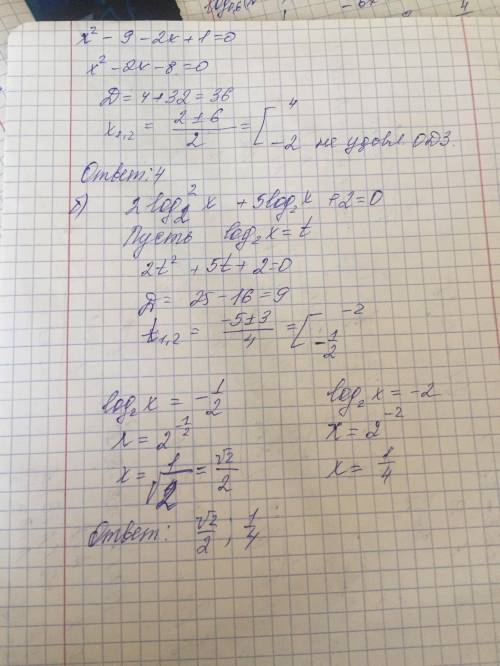 x² - 9 - 2x + 1 = 0
x² - 2x - 8 = 0
D = 4 + 32 = 36
x₁,₂ = (2 ± 6)/2 = [ 4 ; -2 не удовл ОДЗ.
Ответ: 4
б) 2log₂² x + 5log₂ x + 2 = 0
Пусть log₂ x = t
2t² + 5t + 2 = 0
D = 25 - 16 = 9
t₁,₂ = (-5 ± 3)/4 = [ -2 ; -1/2
log₂ x = -1/2
x = 2^(1/2)
x = √(1/2) = √2/2
log₂ x = -2
x = 2⁻²
x = 1/4
Ответ: √2/2 ; 1/4